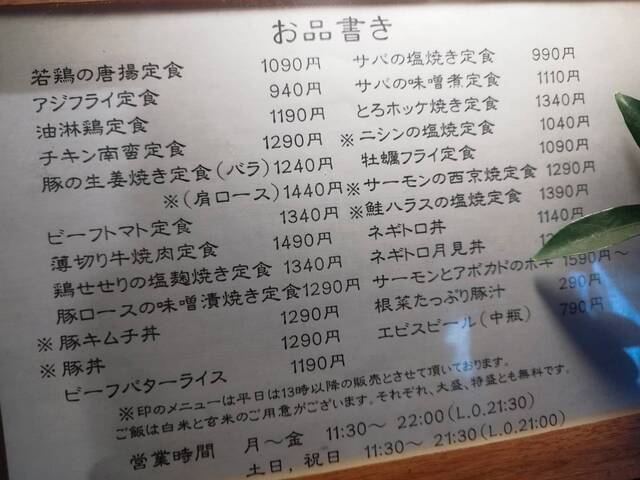 お品書き
若鶏の唐揚定食 1090円
アジフライ定食 940円
油淋鶏定食 1190円
チキン南蛮定食 1290円
豚の生姜焼き定食(バラ) 1240円
※(肩ロース) 1440円
ビーフトマト定食 1340円
薄切り牛焼肉定食 1490円
鶏せせりの塩麹焼き定食 1340円
豚ロースの味噌漬焼き定食 1290円
※豚キムチ丼 1290円
※豚丼 1290円
ビーフバターライス 1190円
サバの塩焼き定食 990円
サバの味噌煮定食 1110円
とろホッケ焼き定食 1340円
※ニシンの塩焼定食 1040円
牡蠣フライ定食 1090円
※サーモンの西京焼定食 1290円
※鮭ハラスの塩焼定食 1390円
ネギトロ丼 1140円
ネギトロ月見丼
サーモンとアボカドのポキ 1590円〜
根菜たっぷり豚汁 290円
エビスビール(中瓶) 790円
※印のメニューは平日は13時以降の販売とさせて頂いております。
ご飯は白米と玄米のご用意がございます。それぞれ、大盛、特盛とも無料です。
営業時間 月〜金 11:30〜 22:00(L.O.21:30)
土日,祝日 11:30〜 21:30(L.O.21:00)